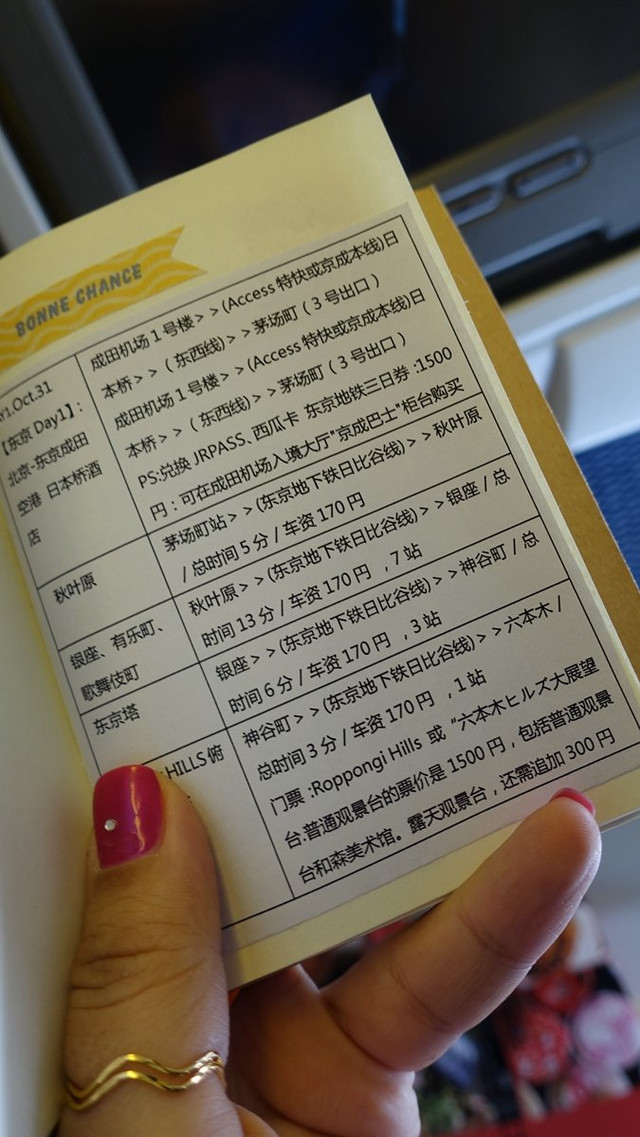 BONNE CHANCE
Y1.Oct.31
【东京 Day1】:
北京-东京成田
空港 日本桥酒
店
成田机场1号楼>>(Access特快或京成本线)日
本桥>>（东西线）>>茅场町（3号出口）
成田机场1号楼>>(Access特快或京成本线)日
本桥>>（东西线）>>茅场町（3号出口）
PS:兑换 JRPASS、西瓜卡 东京地铁三日券 :1500
円：可在成田机场入境大厅"京成巴士"柜台购买
秋叶原
茅场町站>>(东京地下铁日比谷线)>>秋叶原
/ 总时间5分 / 车资170円
银座、有乐町、
歌舞伎町
秋叶原>>(东京地下铁日比谷线)>>银座 / 总
时间13分 / 车资170円 ，7站
东京塔
银座>>(东京地下铁日比谷线)>>神谷町 / 总
时间6分 / 车资170円 ，3站
HILLS 俯
神谷町>>(东京地下铁日比谷线)>>六本木 /
总时间3分 / 车资170円 ，1站
门票 :Roppongi Hills 或 "六本木ヒルズ大展望
台:普通观景台的票价是1500円，包括普通观景
台和森美术馆。露天观景台，还需追加300円